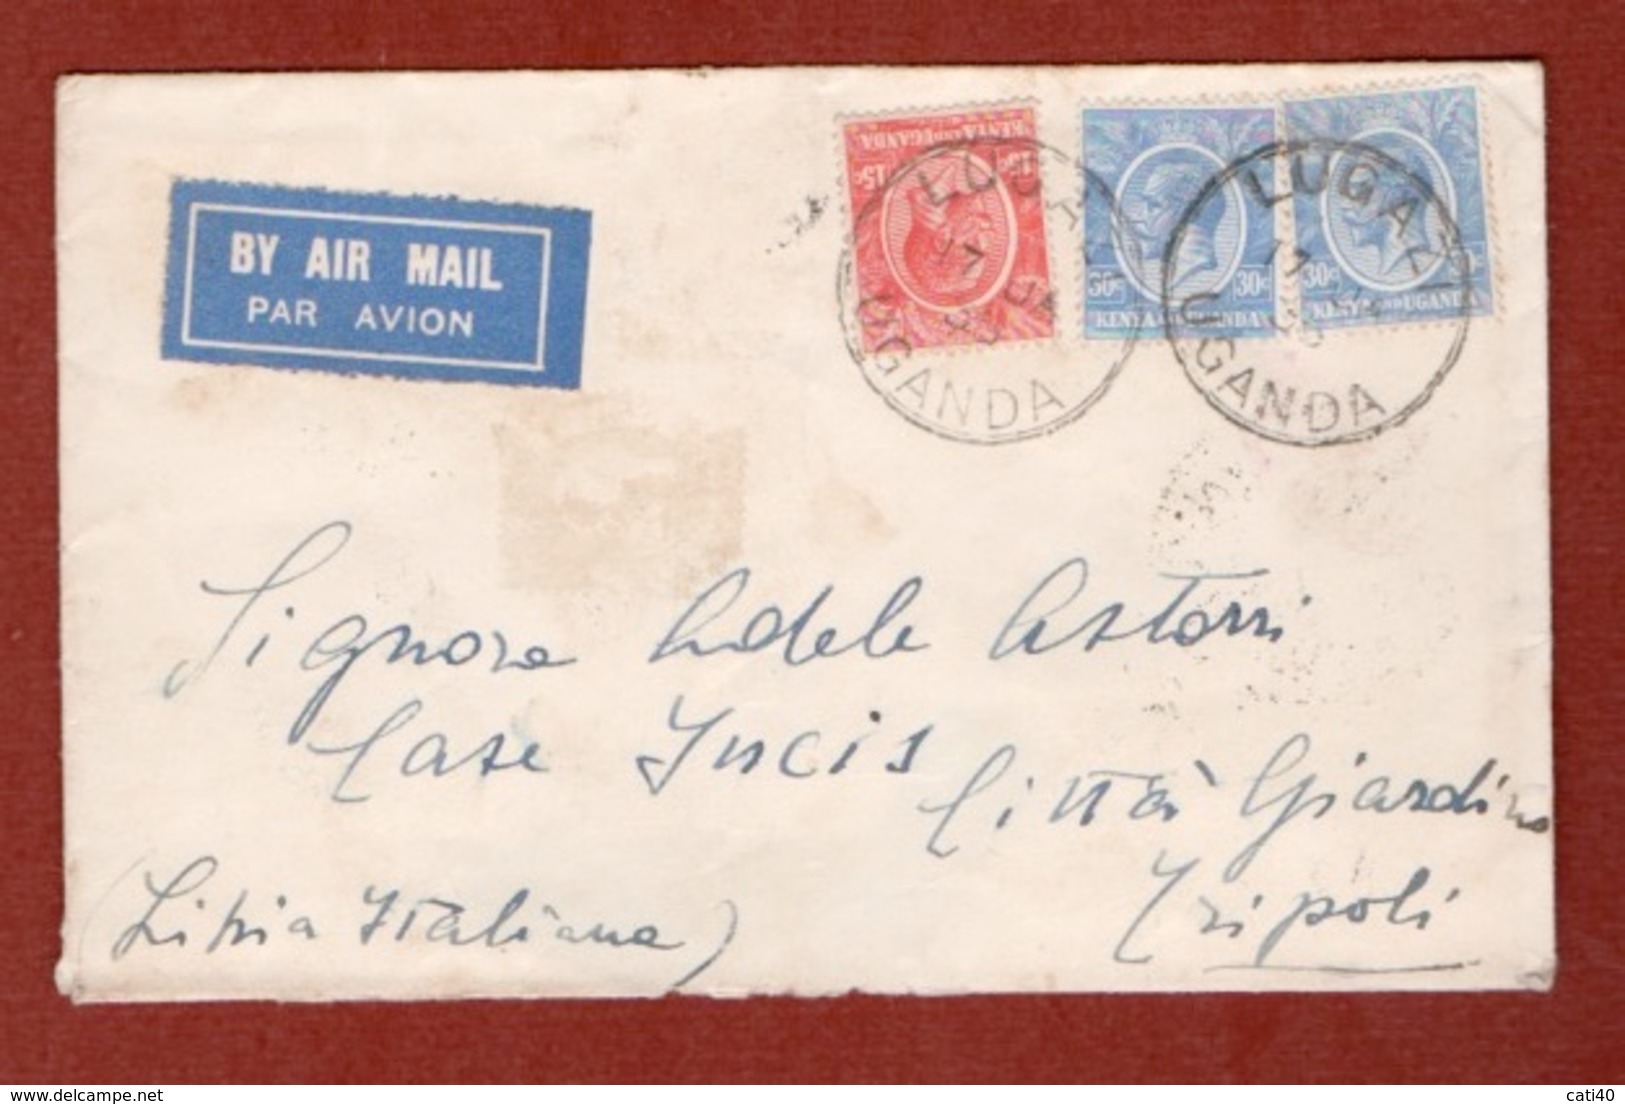 BY AIR MAIL
PAR AVION
KENYA AND UGANDA
15c 15c
30c 30c
KENYA AND UGANDA
30c 30c
KENYA AND UGANDA
LUGAZI
17 JA
UGANDA
LUGAZI
17
UGANDA
Signora Adele Astorri
Case Incis
Città Giardino
Tripoli
(Libia Italiana)
delcampe.net
cati40